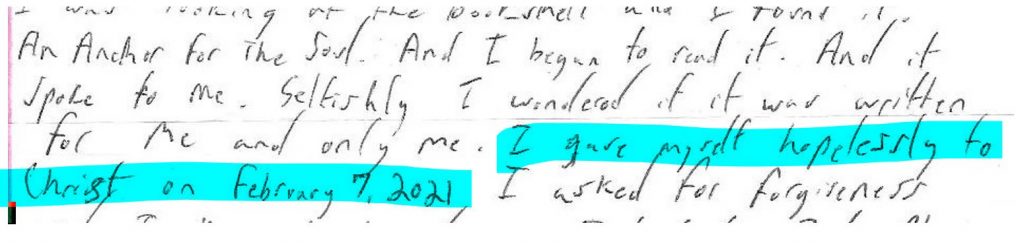 I was looking at the bookshelf and I found it.
An Anchor for The Soul. And I began to read it. And it
spoke to me. Selfishly I wondered if it was written
for me and only me. I gave myself hopelessly to
Christ on February 7, 2021 I asked for forgiveness